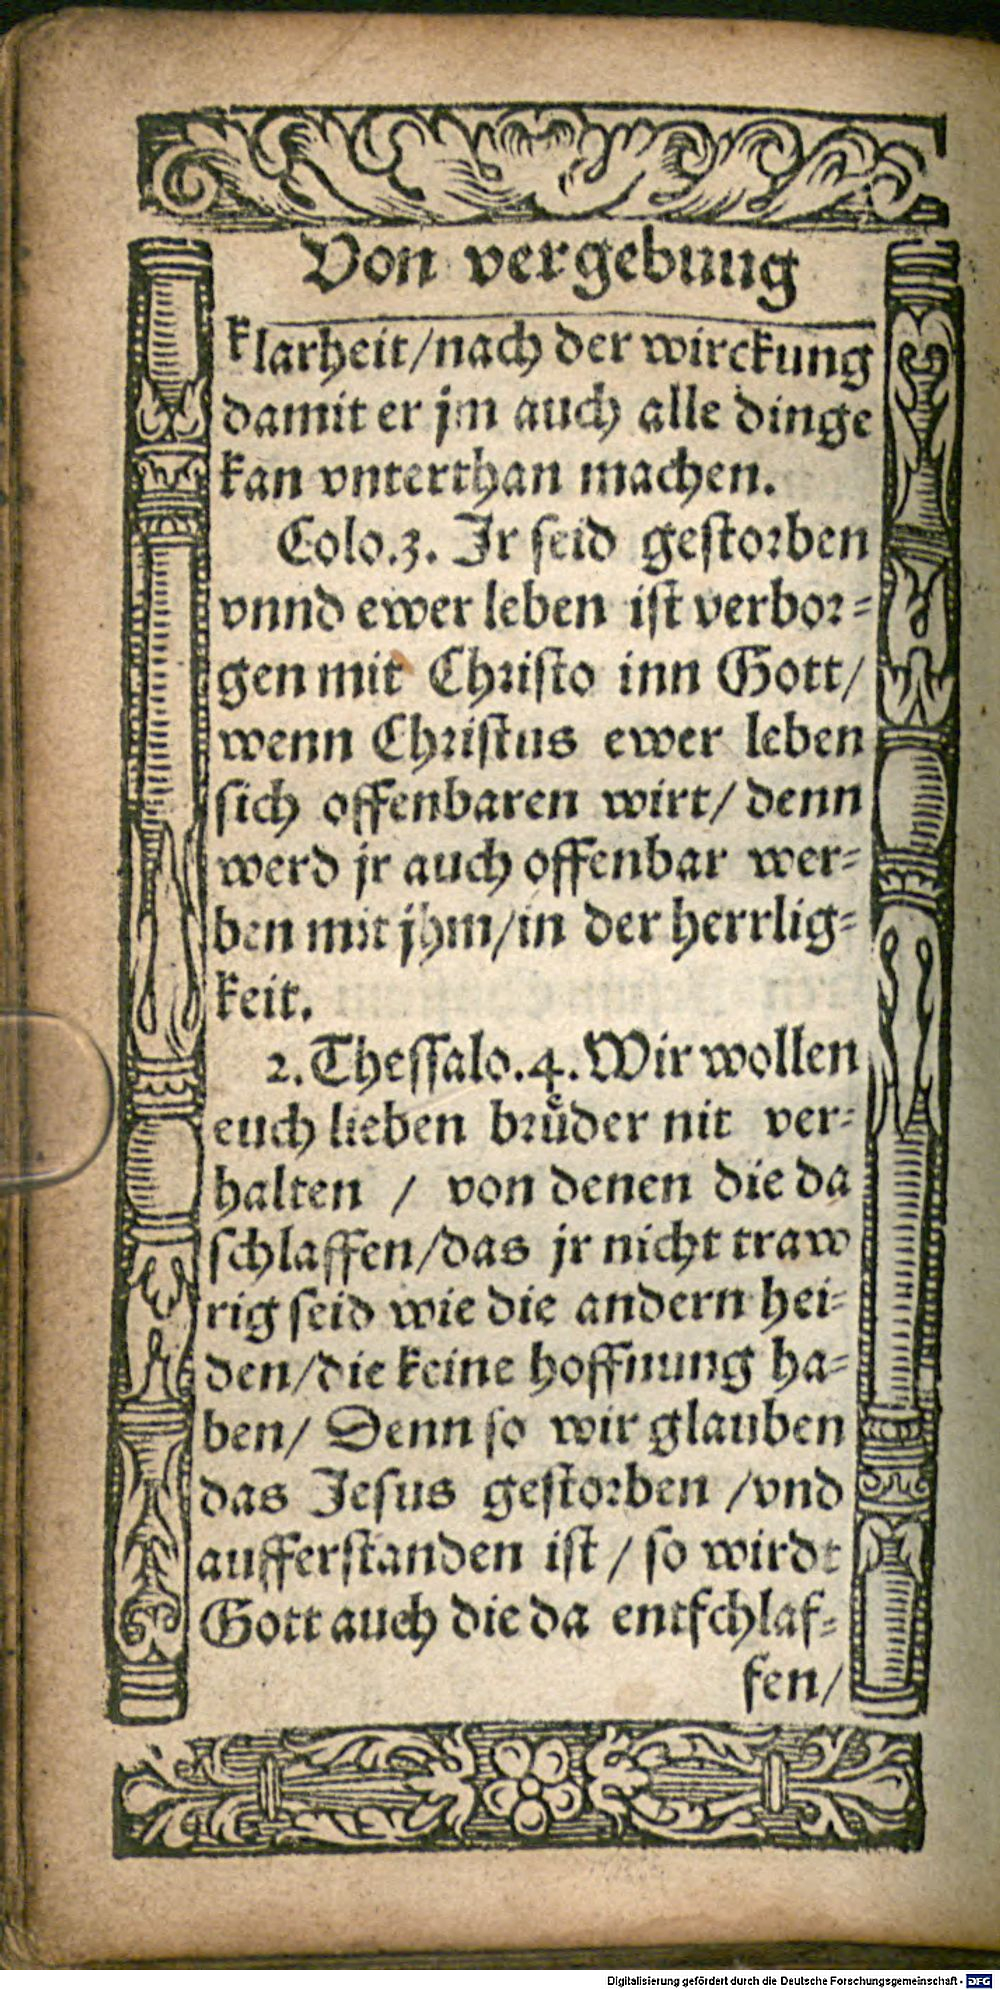 Von vergebung
klarheit/nach der wirckung
damit er jm auch alle dinge
kan vnterthan machen.
Colo.3. Jr seid gestorben
vnnd ewer leben ist verbor=
gen mit Christo inn Gott/
wenn Christus ewer leben
sich offenbaren wirt/ denn
werd jr auch offenbar wer=
ben mit jhm/in der herrlig=
keit.
2.Thessalo.4.Wir wollen
euch lieben bruͤder nit ver=
halten / von denen die da
schlaffen/das jr nicht traw
rig seid wie die andern hei=
den/die keine hoffnung ha=
ben/ Denn so wir glauben
das Jesus gestorben /vnd
aufferstanden ist / so wirdt
Gott auch die da entschlaf=
fen/
Digitalisierung gefördert durch die Deutsche Forschungsgemeinschaft - DFG